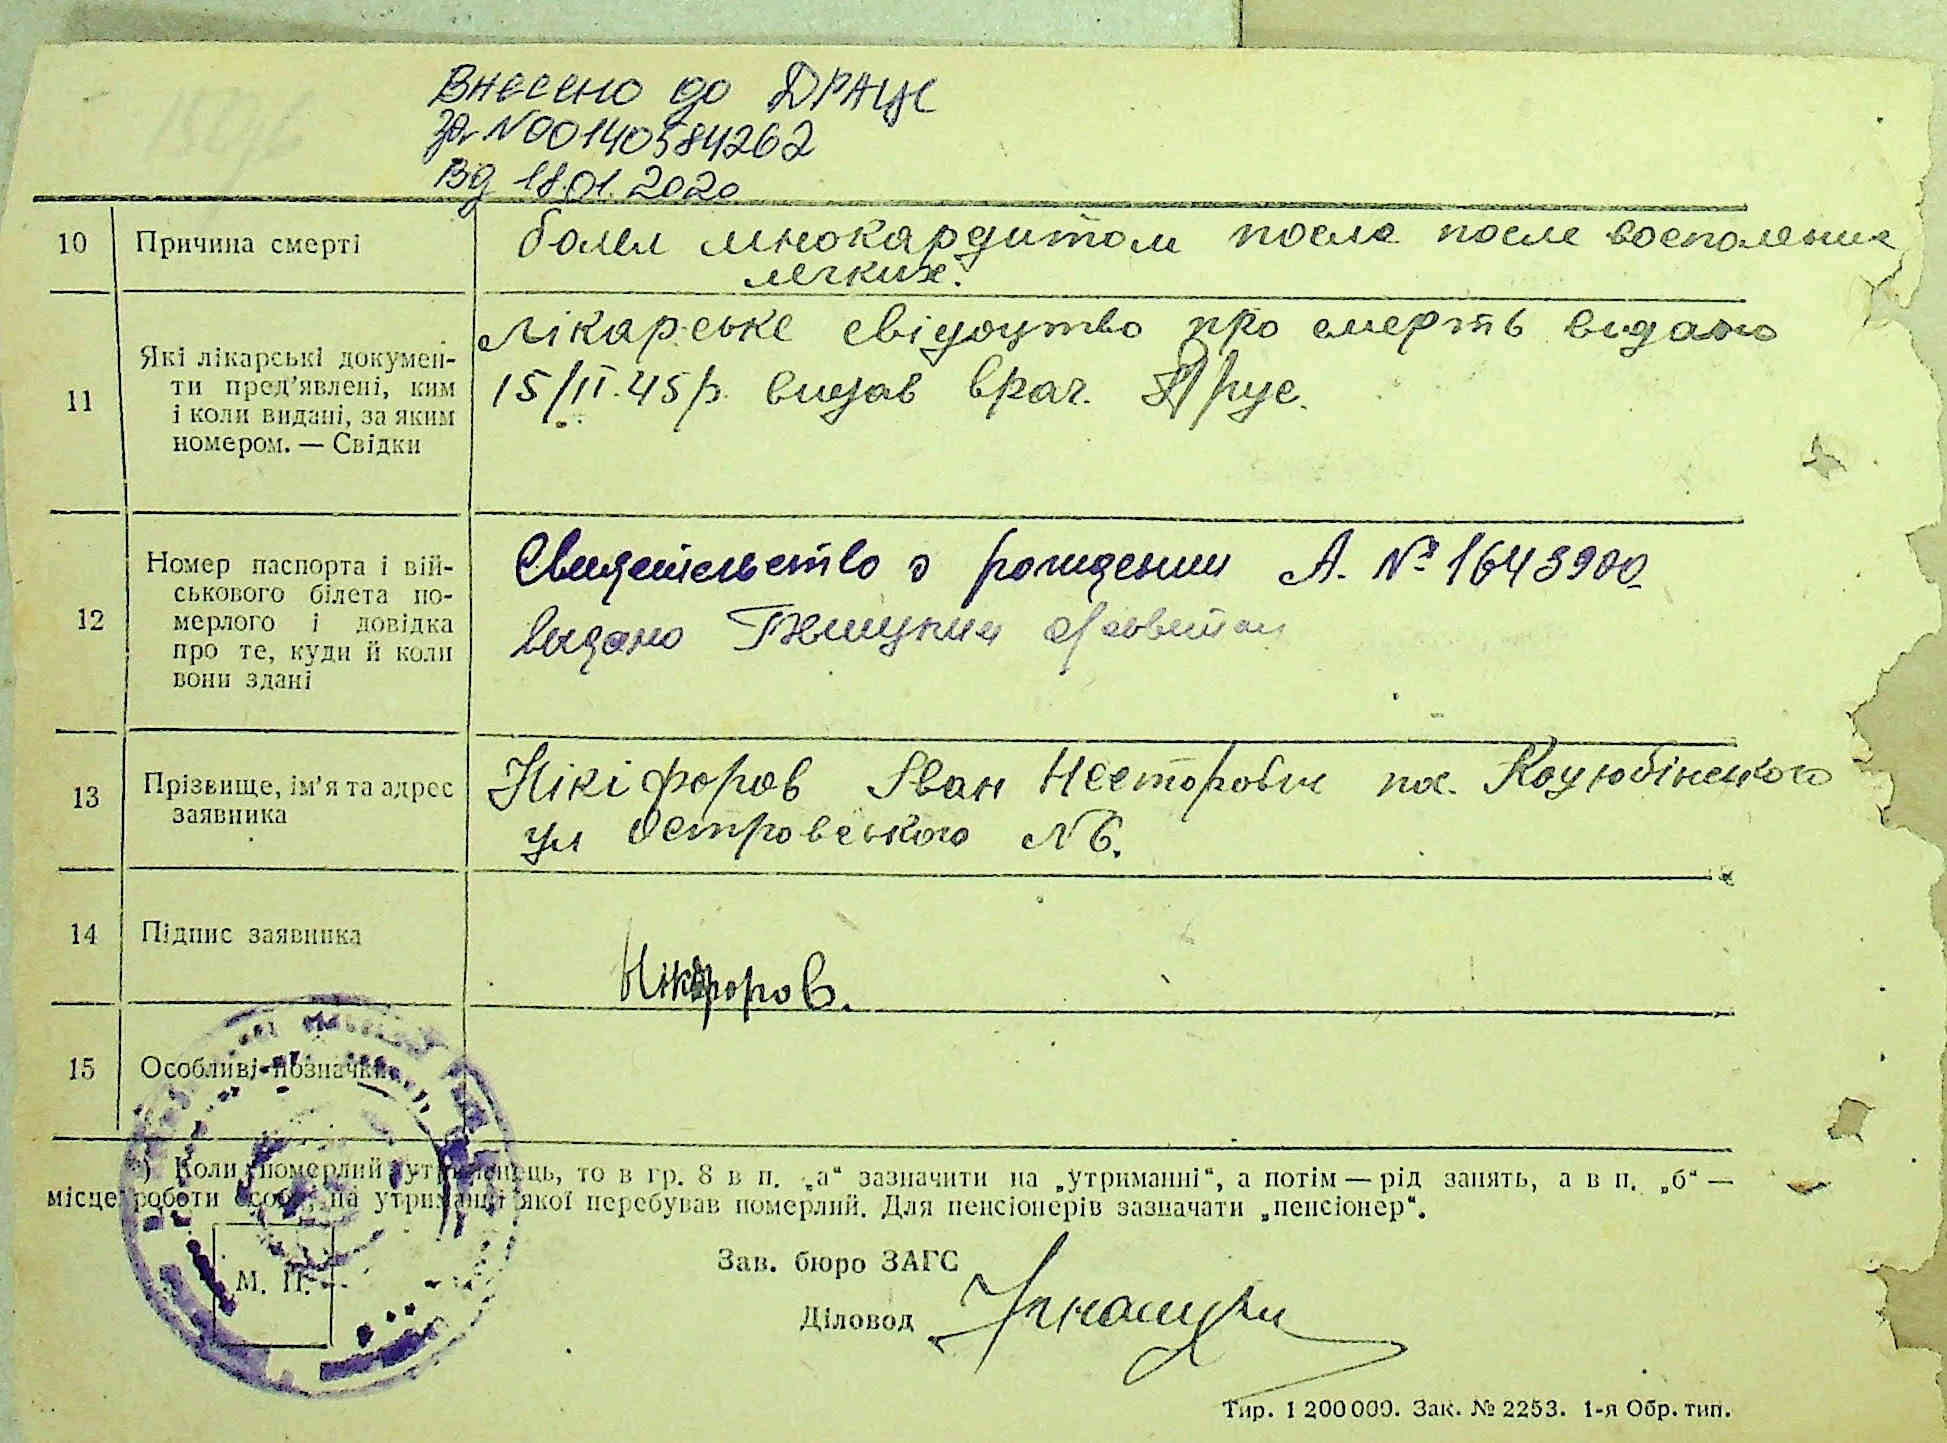 Внесено до ДРАЦС
за №00140584262
від 18.01.2020
10 Причина смерті
болел миокардитом посла после восполения
легких.
11 Які лікарські докумен-
ти пред'явлені, ким
і коли видані, за яким
номером. — Свідки
Лікарське свідоцтво про смерть видано
15/II.45р. видав врач.
12 Номер паспорта і вій-
ськового білета по-
мерлого і довідка
про те, куди й коли
вони здані
Свидетельство о рождении А. № 1643900
видано
13 Прізвище, ім'я та адрес
заявника
Нікіфоров Іван Несторович пос. Коцюбінського
ул Островського №6.
14 Підпис заявника
Нікіфоров.
15 Особливі позначки
*) Коли померлий утриманець, то в гр. 8 в п. „а“ зазначити на „утриманні“, а потім — рід занять, а в п. „б“ —
місце роботи особи, на утриманні якої перебував померлий. Для пенсіонерів зазначати „пенсіонер“.
Зав. бюро ЗАГС
М. П.
Діловод
Тир. 1 200 000. Зак. № 2253. 1-я Обр. тип.